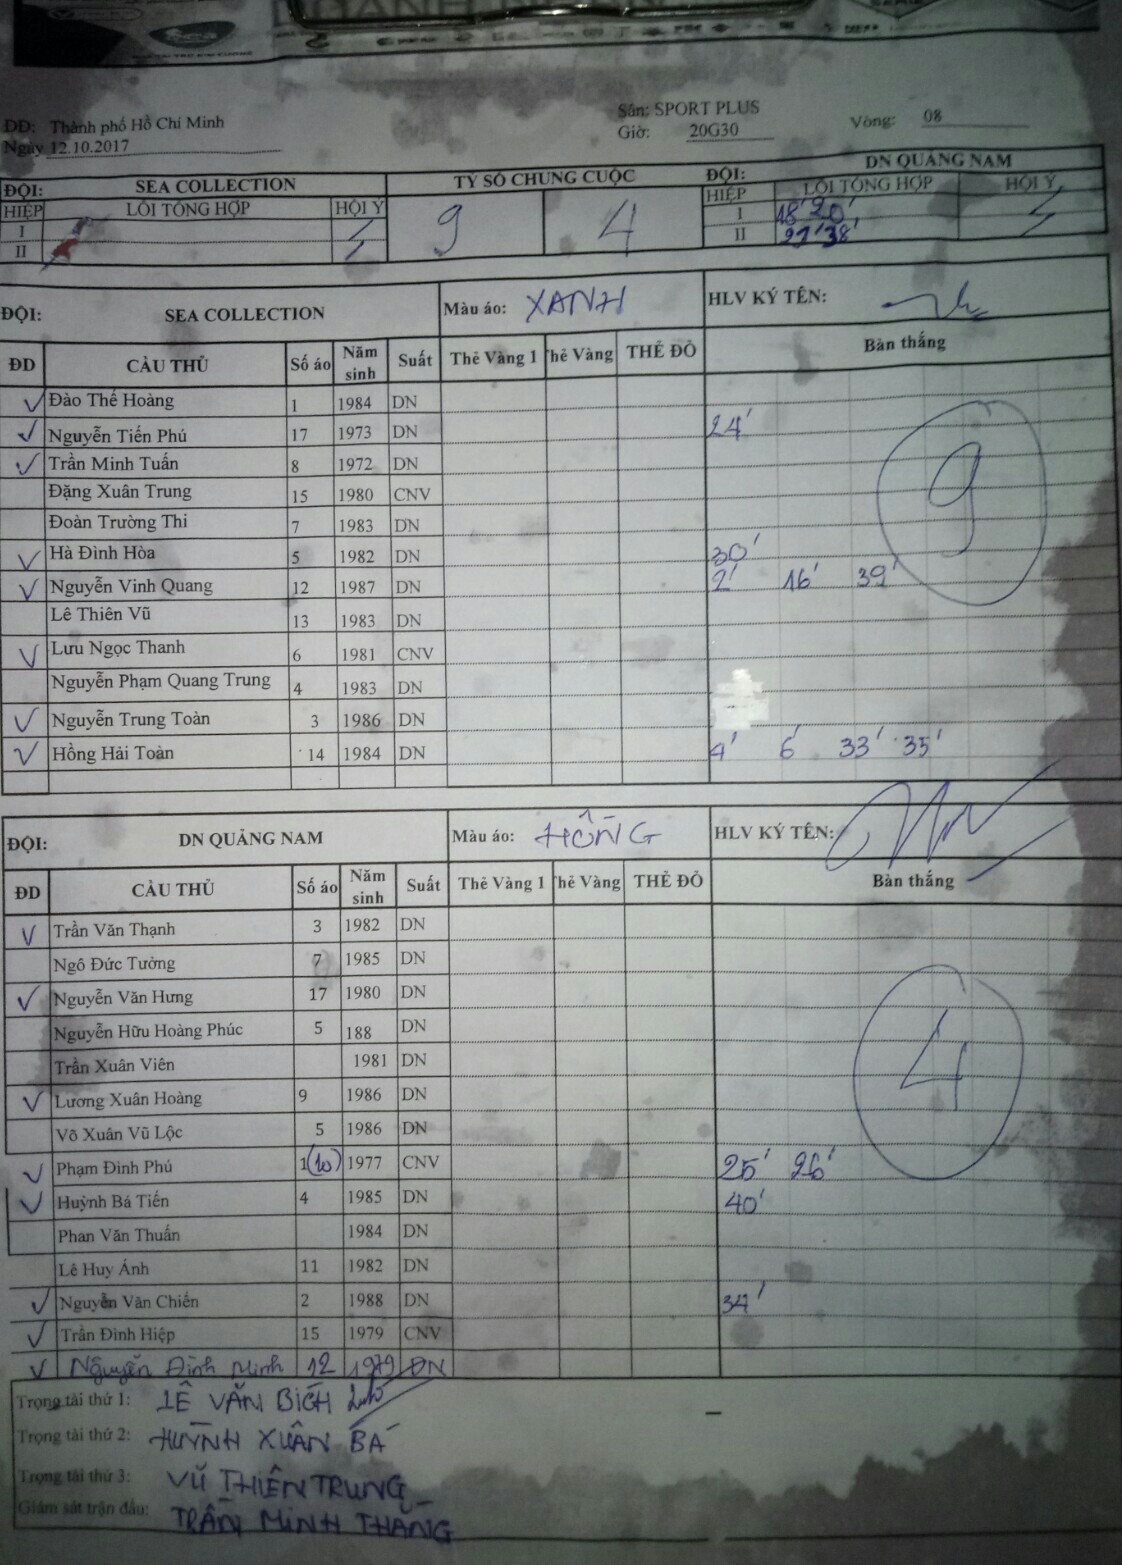 ĐĐ: Thành phố Hồ Chí Minh
Ngày 12.10.2017
Sân: SPORT PLUS
Giờ: 20G30
Vòng: 08
ĐỘI: SEA COLLECTION TỶ SỐ CHUNG CUỘC ĐỘI: DN QUẢNG NAM
HIỆP LỖI TỔNG HỢP HỘI Ý 9 4 HIỆP LỖI TỔNG HỢP HỘI Ý
I I 18' 20'
II II 27' 38'
ĐỘI: SEA COLLECTION Màu áo: XANH HLV KÝ TÊN:
ĐD CẦU THỦ Số áo Năm sinh Suất Thẻ Vàng 1 Thẻ Vàng THẺ ĐỎ Bàn thắng
Đào Thế Hoàng 1 1984 DN
Nguyễn Tiến Phú 17 1973 DN 24'
Trần Minh Tuấn 8 1972 DN
Đặng Xuân Trung 15 1980 CNV
Đoàn Trường Thi 7 1983 DN
Hà Đình Hòa 5 1982 DN 30'
Nguyễn Vinh Quang 12 1987 DN 2' 16' 39'
Lê Thiên Vũ 13 1983 DN
Lưu Ngọc Thanh 6 1981 CNV
Nguyễn Phạm Quang Trung 4 1983 DN
Nguyễn Trung Toàn 3 1986 DN
Hồng Hải Toàn 14 1984 DN 4' 6' 33' 35'
9
ĐỘI: DN QUẢNG NAM Màu áo: HỒNG HLV KÝ TÊN:
ĐD CẦU THỦ Số áo Năm sinh Suất Thẻ Vàng 1 Thẻ Vàng THẺ ĐỎ Bàn thắng
Trần Văn Thạnh 3 1982 DN
Ngô Đức Tưởng 7 1985 DN
Nguyễn Văn Hưng 17 1980 DN
Nguyễn Hữu Hoàng Phúc 5 188 DN
Trần Xuân Viên 1981 DN
Lương Xuân Hoàng 9 1986 DN
Võ Xuân Vũ Lộc 5 1986 DN
Phạm Đình Phú 1 (10) 1977 CNV 25' 26'
Huỳnh Bá Tiến 4 1985 DN 40'
Phan Văn Thuấn 1984 DN
Lê Huy Ánh 11 1982 DN
Nguyễn Văn Chiến 2 1988 DN 34'
Trần Đình Hiệp 15 1979 CNV
Nguyễn Đình Minh 12 1979 DN
4
Trọng tài thứ 1: LÊ VĂN BÍCH
Trọng tài thứ 2: HUỲNH XUÂN BÁ
Trọng tài thứ 3: VŨ THIÊN TRUNG
Giám sát trận đấu: TRẦN MINH THẮNG